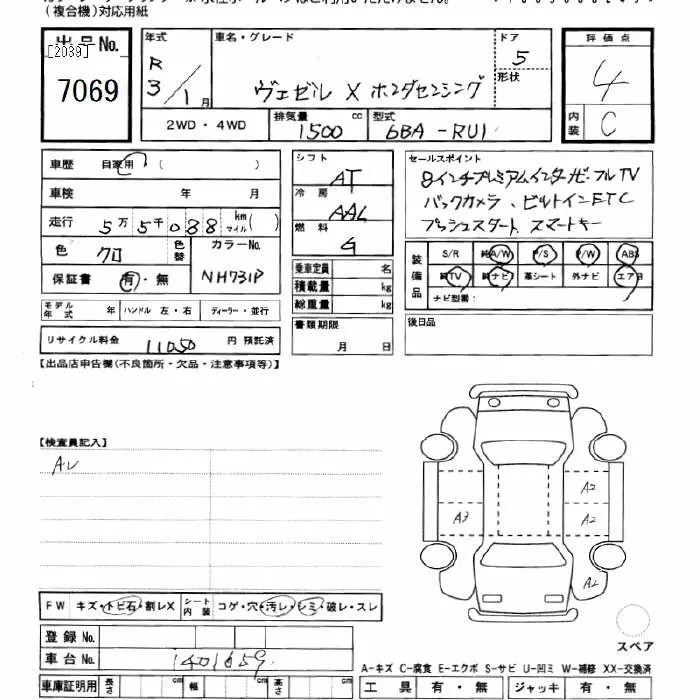 (複合機)対応用紙
出品No.
[2039]
7069
年式
R 3/1月
車名・グレード
ヴェゼル X ホンダセンシング
ドア
5
形状
評価点
4
内装
C
2WD・4WD
排気量
1500 cc
型式
6BA-RU1
車歴 自家用 (    )
車検 年 月
走行 5万5千088 km マイル( )
色 クロ 色替
カラーNo.
NH731P
保証書 有・無
モデル年式 年 ハンドル 左・右 ディーラー・並行
リサイクル料金 11050 円 預託済
シフト
AT
冷房
AAC
燃料
G
乗車定員 名
積載量 kg
総重量 kg
書類期限
月 日
セールスポイント
8インチプレミアムインターナビ・フルTV
バックカメラ、ビルトインETC
プッシュスタート スマートキー
装備品
S/R 純A/W P/S P/W ABS
純TV 純ナビ 革シート 外ナビ エアB
ナビ型番:
後日品
【出品店申告欄(不良箇所・欠品・注意事項等)】
【検査員記入】
AU
A2
A3
A2
A2
FW キズ・トビ石・割レX シート内装 コゲ・穴・汚レ・シミ・破レ・スレ
登録No.
車台No. 1401659
スペア
A-キズ C-腐食 E-エクボ S-サビ U-凹ミ W-補修 XX-交換済
車庫証明用 長さ cm 幅 cm 高さ cm
工具 有・無 ジャッキ 有・無